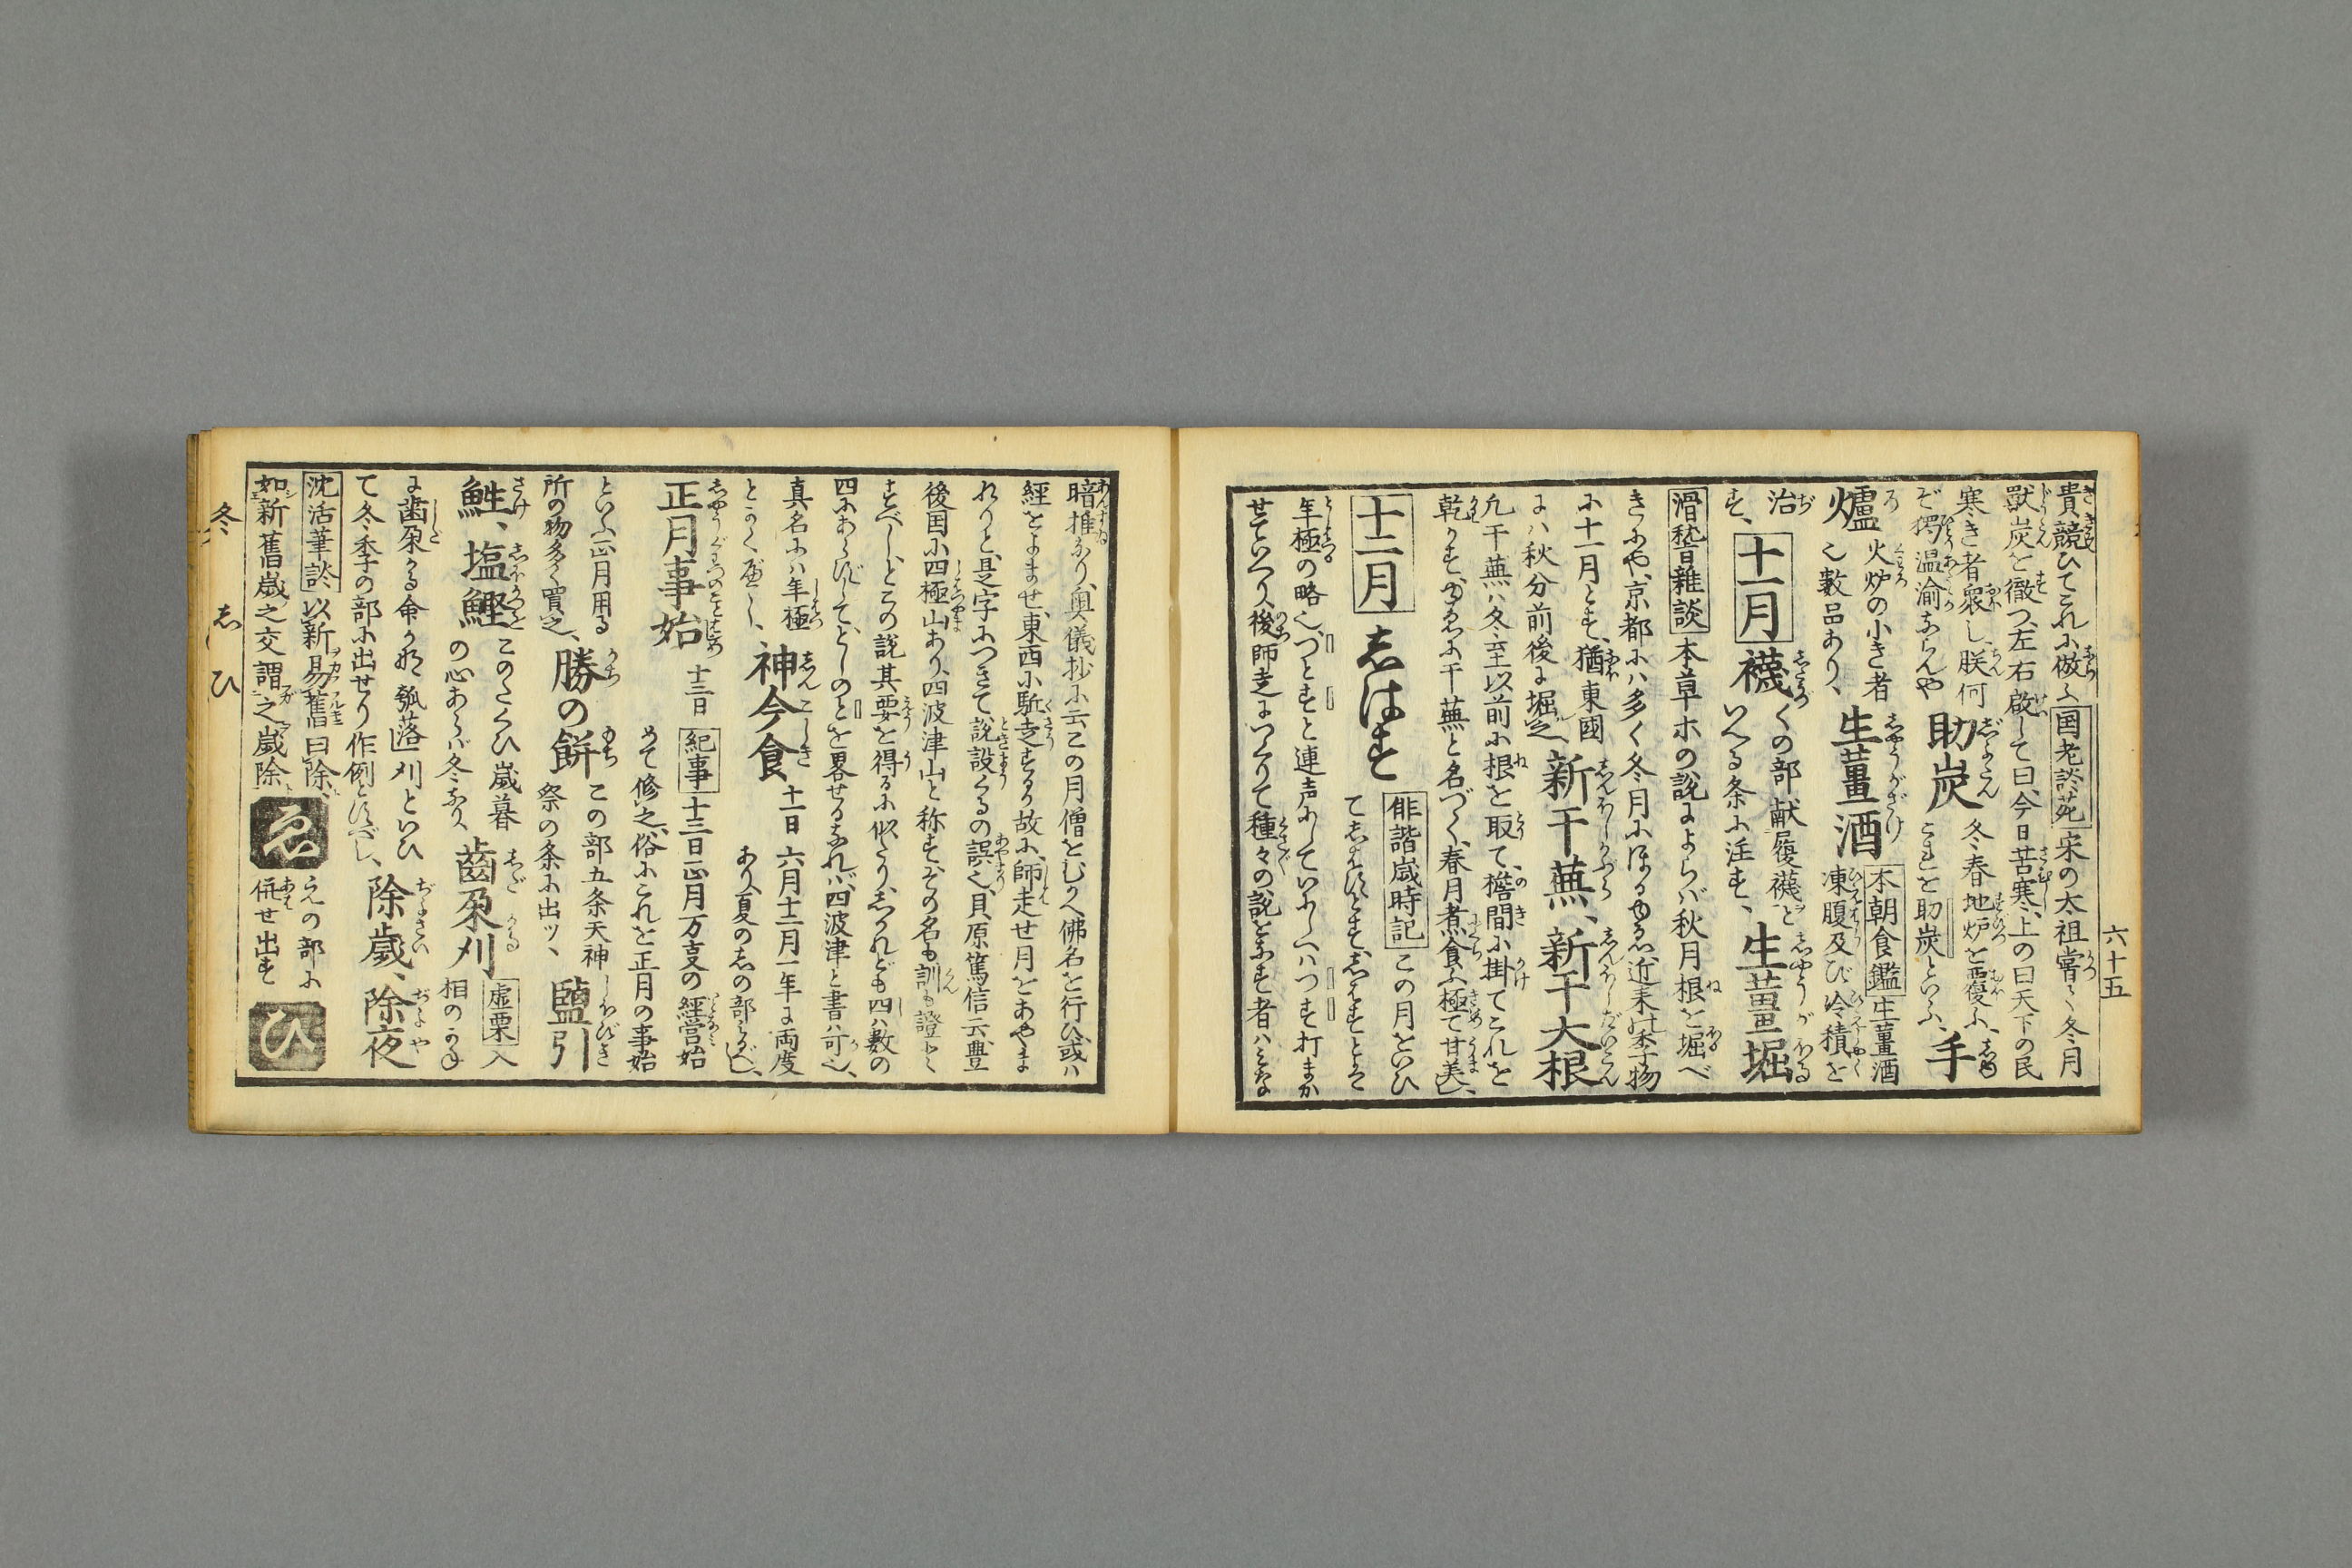 貴競ひてこれに倣ふ国老談苑宋の太祖嘗て冬月
獣炭を徹つ左右啓して曰今日苦寒上の曰天下の民
寒き者衆し朕何
ぞ獨温渝ならんや
助炭
冬春地炉を覆ふ
これを助炭といふ、
手
爐
火炉の小き者
也數品あり、
生薑酒
本朝食鑑生薑酒
凍腹及び冷積を
治
す、
十一月
襪
くの部献履襪と
いへる条に注す、
生薑堀
滑稽雑談本草ホの説によらバ秋月根を堀べ
きにや、京都にハ多く冬月にほるゆゑ近来此季物
に十一月とす、猶東國
にハ秋分前後に堀之、
新干蕪、新干大根
凡干蕪ハ冬至以前に根を取て、檐間に掛てこれを
乾かす、ゆゑに干蕪と名づく、春月煮食ふ極て甘美し、
十二月
志はす
俳諧歳時記この月をいひ
て志はすとす、志はすとは
年極の略也、づとすと連声にしていふしハつす打まか
せていへり、後師走につくりて種々の説をなす者ハみな
暗推なり、奥儀抄に云この月僧をむかへ佛名を行ひ或ハ
經をよませ、東西に馳走するか故に、師走せ月をあやま
れりと、是字につきて説設くるの誤也、貝原篤信云豊
後国に四極山あり、四波津山と称す、その名も訓も證とく
すべし、とこの説其要を得るに似たり、志かれども四ハ数の
四にあらずして、どしのとを畧せるなれバ、四波津と書ハ可也、
真名にハ年極
とかくべし、
神今食
十一日六月十二月一年に両度
あり、夏の志の部みるべし、
正月事始
十三日
紀事十三日正月万支の經営始
めて修之、俗にこれを正月の事始
といふ、正月用る
所の物多く買之、
勝の餅
この部五条天神
祭の条に出ッ、
鹽引
鮏、塩鰹
このたぐひ歳暮
の心あらバ冬なり、
齒朶刈
虚栗入
相のかね
に歯朶かる命かな瓠落刈といひ
て冬季の部に出せり作例とすべし、
除歳、除夜
沈活筆談以新易舊曰除、
如新舊歳之交謂之歳除
ゑ
えの部に
併せ出す
ひ
六十五
冬
志
ひ